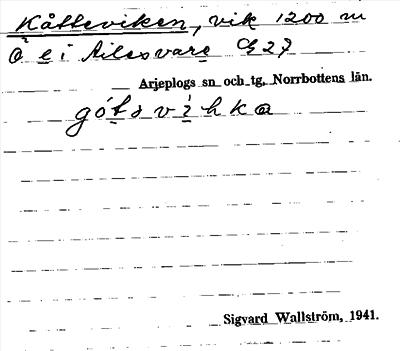 Kåtteviken, vik 1200 m
Ö e i Ailesvare G27
Arjeplogs sn och tg, Norrbottens län.
gótsvihka
Sigvard Wallström, 1941.